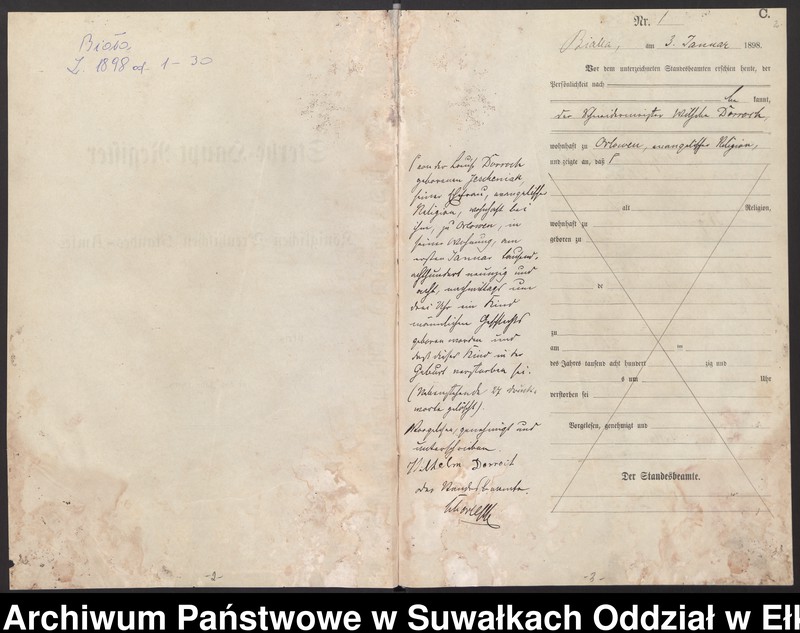 Biała
Z. 1898 od 1-30
-2-
C.
Nr. 1
Bialla, am 3. Januar 1898.
Vor dem unterzeichneten Standesbeamten erschien heute, der
Persönlichkeit nach
be kannt,
der Schneidermeister Wilhelm Dorroch,
wohnhaft zu Orlowen, evangelischer Religion,
und zeigte an, daß
von der Louise Dorroch
geborenen Jescheniak,
seiner Ehefrau, evangelischer
Religion, wohnhaft bei
ihm, zu Orlowen, in
seiner Wohnung, am
ersten Januar tausend
achthundert neunzig und
acht, nachmittags um
drei Uhr ein Kind
männlichen Geschlechts
geboren worden und
daß dieses Kind in der
Geburt verstorben sei.
(Nebenstehende 27 Druck-
worte gelöscht).
Vorgelesen, genehmigt und
unterschrieben
Wilhelm Dorroch
Der Standesbeamte.
alt Religion,
wohnhaft zu
geboren zu
de
zu
am
des Jahres tausend acht hundert zig und
s um Uhr
verstorben sei
Vorgelesen, genehmigt und
Der Standesbeamte.
-3-
Archiwum Państwowe w Suwałkach Oddział w Ełk